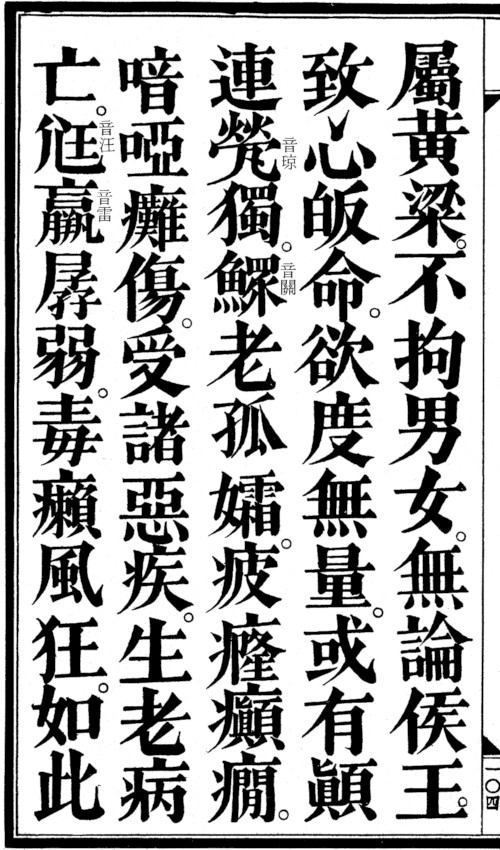 屬黃粱。不拘男女。無論侯王。
致心皈命。欲度無量。或有顚
連煢音琼獨。鰥音關老孤孀。疲癃癲癇。
喑啞癱傷。受諸惡疾。生老病
亡。尫音汪羸音雷孱弱。毒癩風狂。如此
一〇四